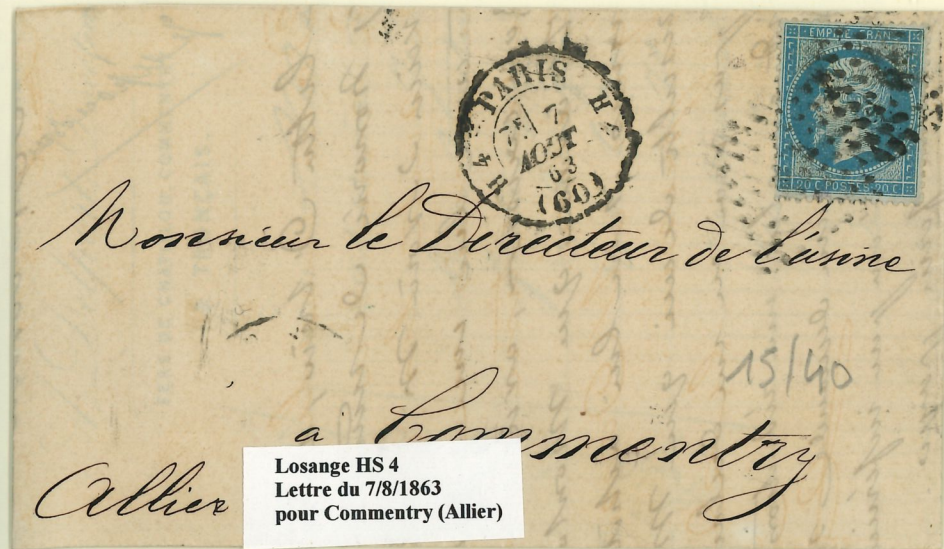 EMPIRE FRANC
PARIS
7E 7
AOUT
63
(60)
20 C POSTES 20 C
Monsieur le Directeur de l'usine
15/40
a Commentry
Allier
Losange HS 4
Lettre du 7/8/1863
pour Commentry (Allier)